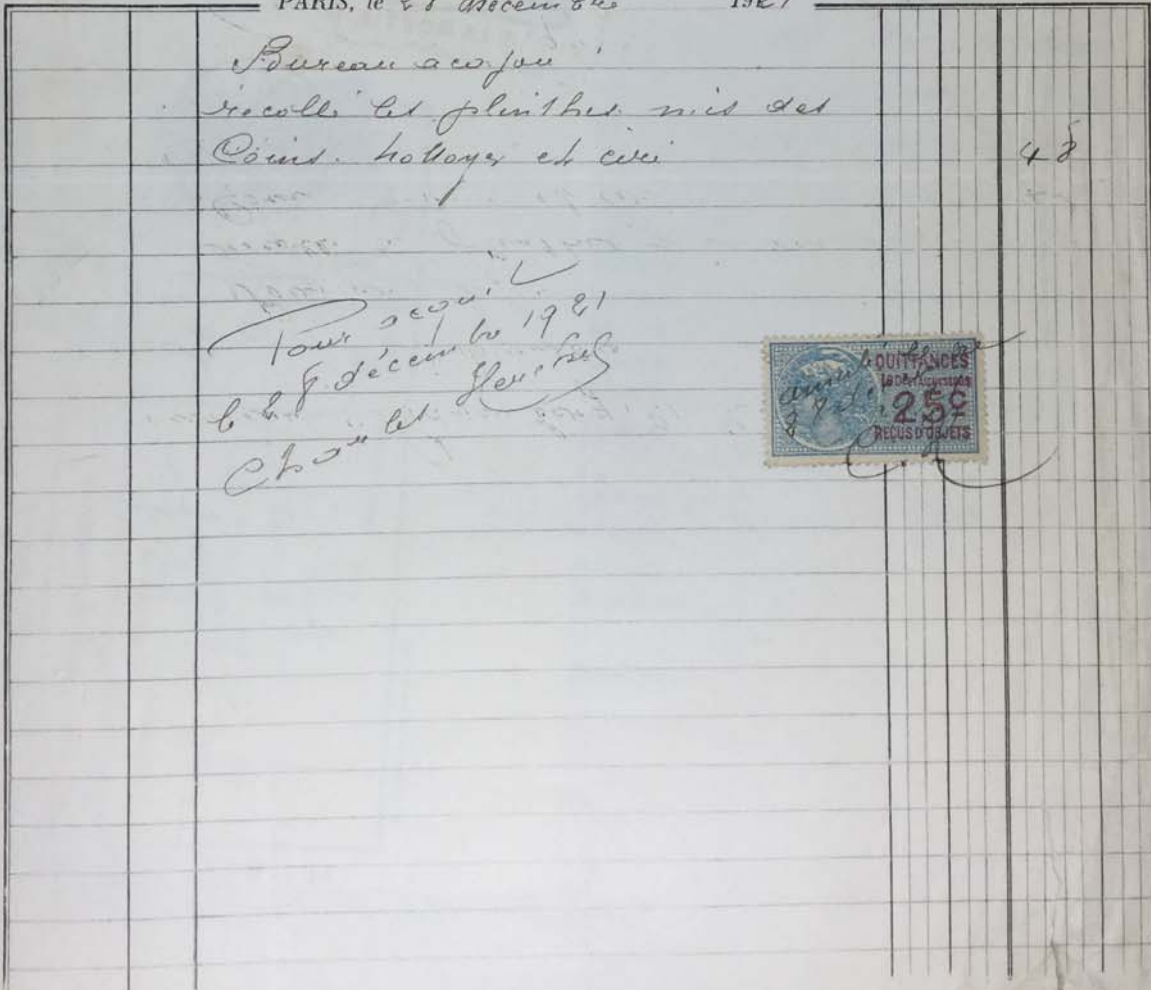 PARIS, le 28 décembre 1921
Bureau acajou
recollé les plinthes mis des
Coins. nettoyer et ciré
48
Pour acquit
le 28 décembre 1921
Charles
QUITTANCES
25c
RECUS D'OBJETS